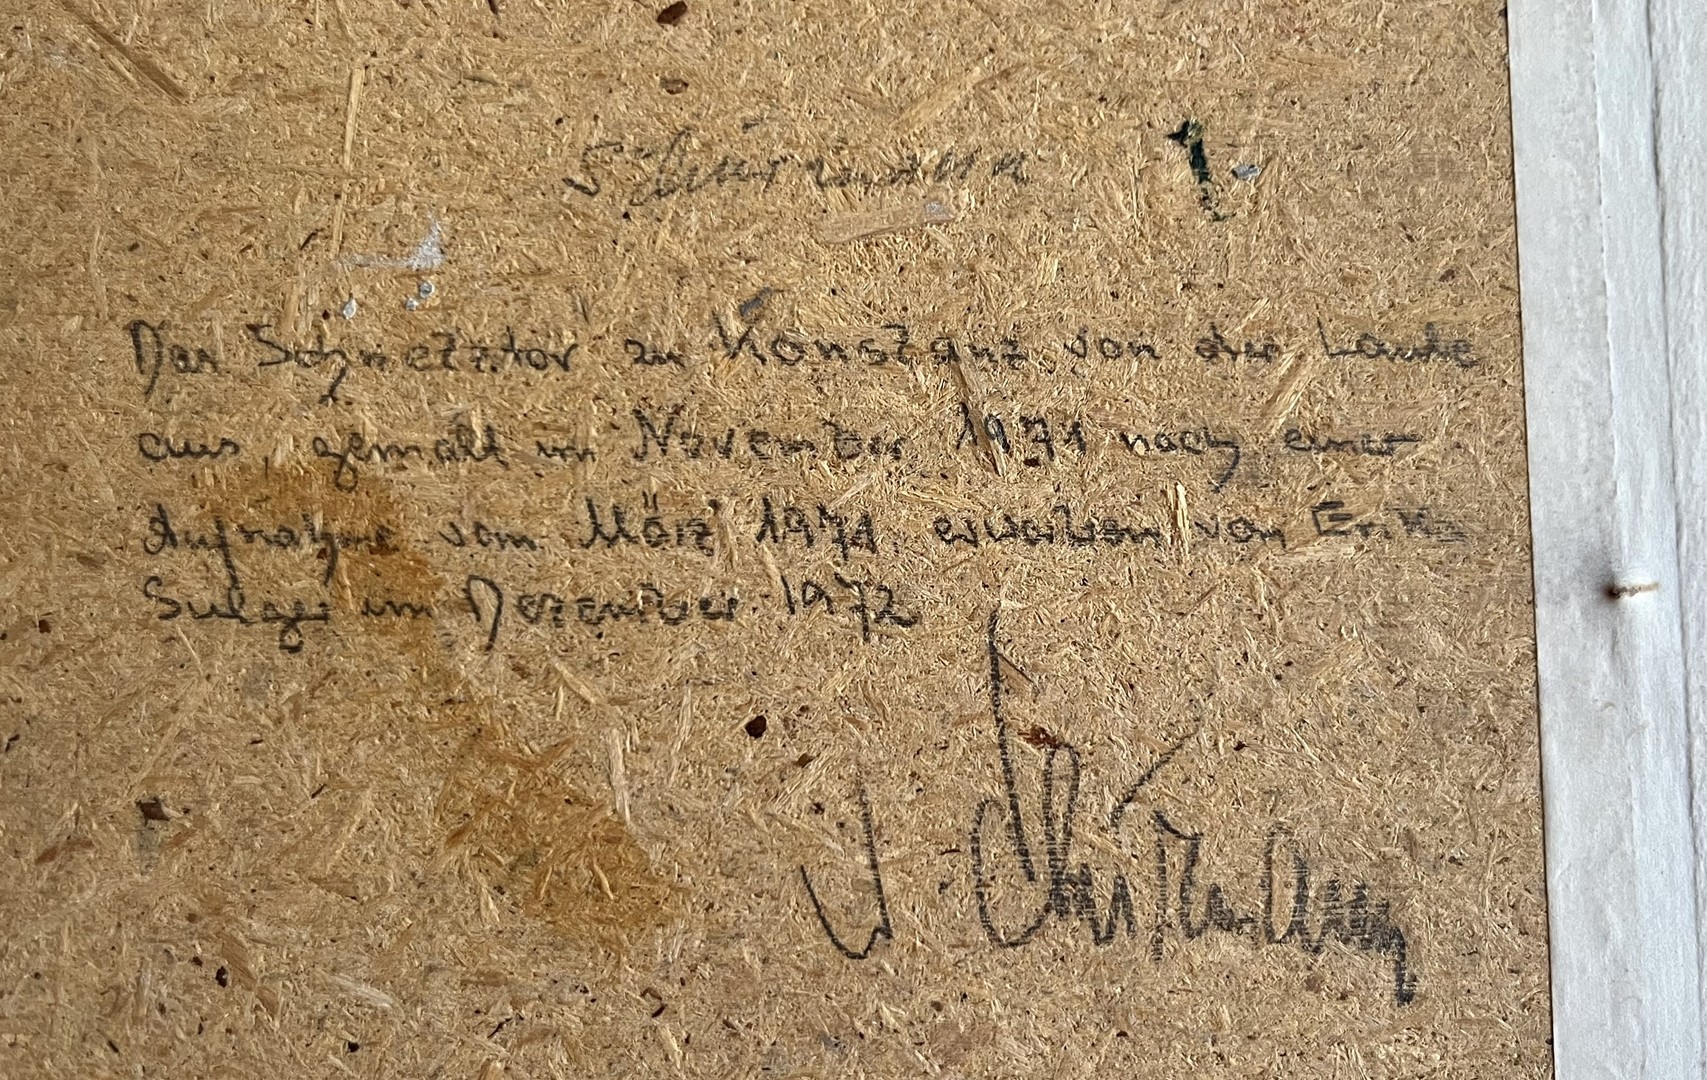 Schürmann 1.
Das Schnetztor zu Konstanz von der Laube
aus, gemalt im November 1971 nach einer
Aufnahme vom März 1971, erworben von Erika
Sulger im Dezember 1972
J Schürmann